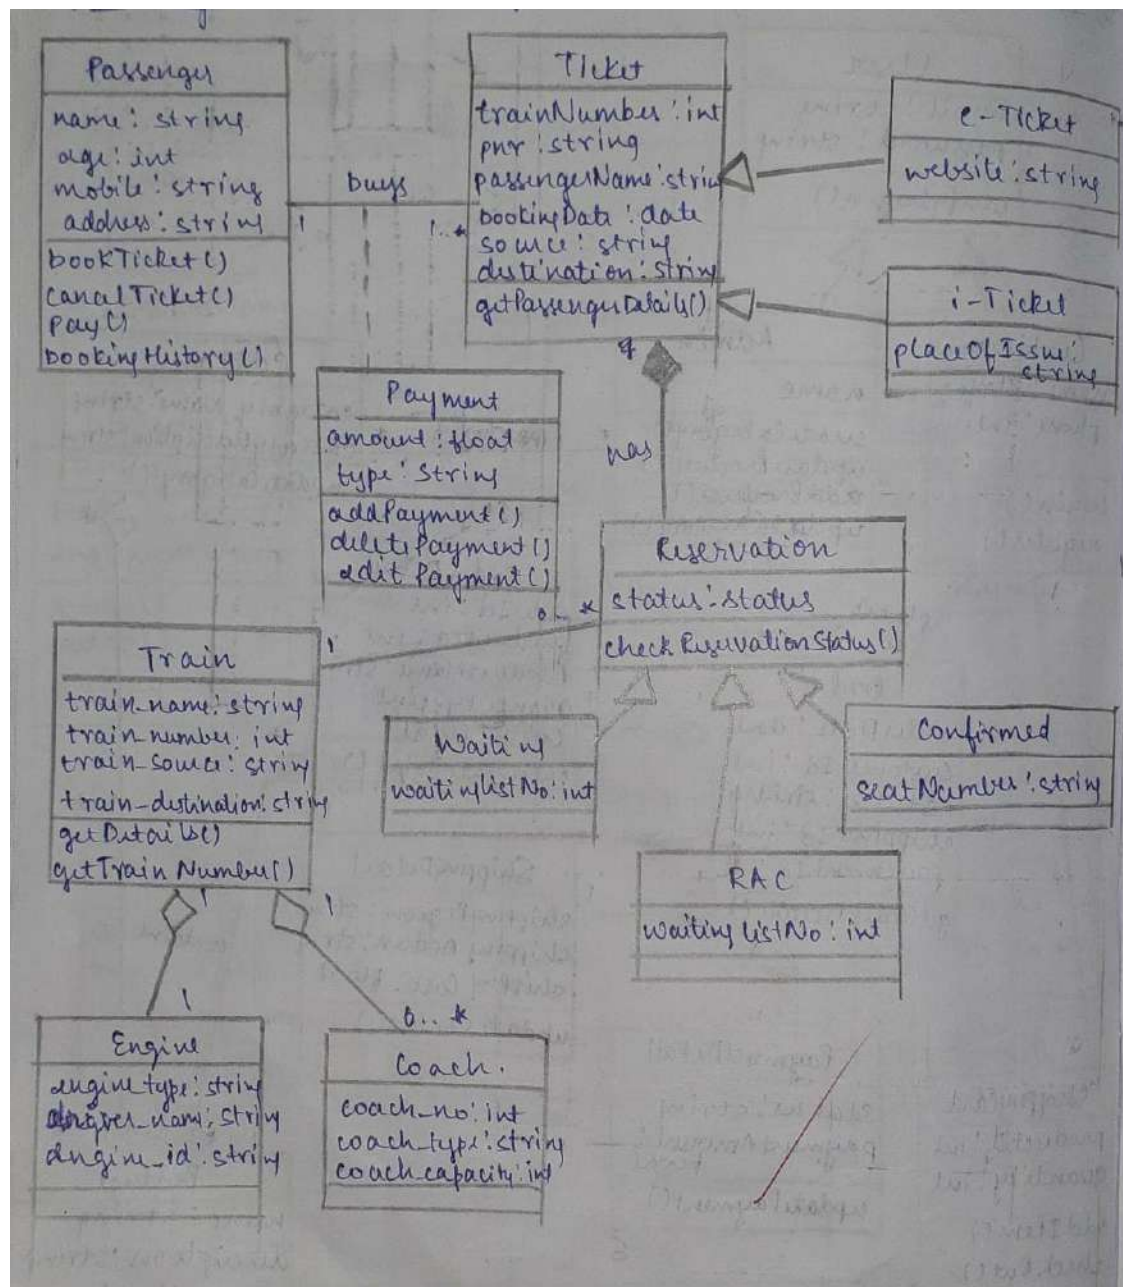 Passenger
name: string
age: int
mobile: string
address: string
bookTicket()
canalTicket()
Pay()
bookingHistory()
buys
1
1..*
Ticket
trainNumber: int
pnr: string
passengerName: string
bookingData: date
source: string
destination: string
getPassengerDetails()
e-Ticket
website: string
i-Ticket
placeOfIssue:
string
Payment
amount: float
type: String
addPayment()
deletePayment()
edit Payment()
has
Reservation
status: status
checkReservationStatus()
0..*
1
Train
train_name: string
train_number: int
train_source: string
train_destination: string
getDetails()
getTrainNumber()
Waiting
waitinglistNo: int
Confirmed
seatNumber: string
RAC
waitinglistNo: int
1
1
1
0..*
Engine
engine_type: string
engine_id: string
Coach.
coach_no: int
coach_type: string
coach_capacity: int